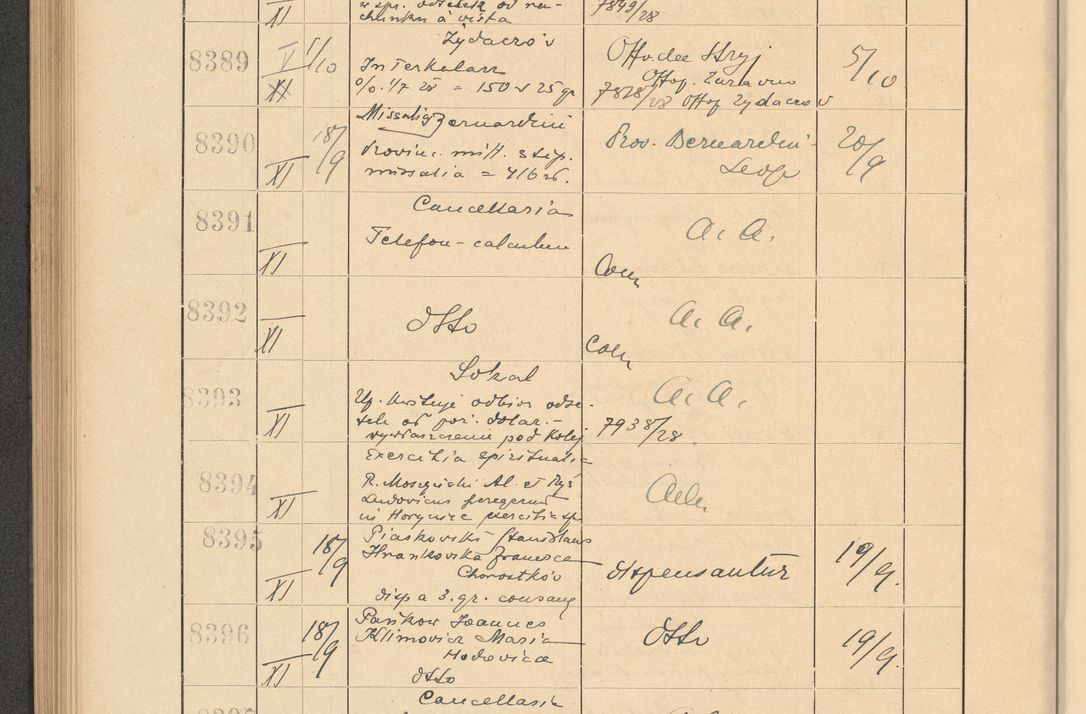 XI
chunku a vista
7849/28
8389
V
XI
1/10
Żydaczów
Interkelarz
% 1/7 28 = 150 zł 25 gr
Off. dec Stryj
Off. Żurawno
7828/28 Off. Żydaczów
5/10
8390
XI
18/9
Missalia Bernardini
Provinc. mitt. stip.
missalia = 416 zł.
Prov. Bernardin-
Leop
20/9
8391
XI
Cancellaria
Telefon-calculum
a. a.
Com
8392
XI
dtto
a. a.
Com
8393
XI
Sokal
odbior odse-
tek od poż. dolar. -
wywłaszczenie pod kolej
a. a.
7938/28
8394
XI
Exercitia spiritualia
R. Moszyński Al. et Ryś
Ludovicus peregerunt
in Horyniec exercitia sp
8395
XI
18/9
Piaskowski Stanislaus
Hrankowska Francesca
Chorostków
disp a 3. gr. consang
dispensantur
19/9.
8396
XI
18/9
Pańkow Joannes
Klimowicz Maria
Hodowica
dtto
dtto
19/9.
Cancellaria